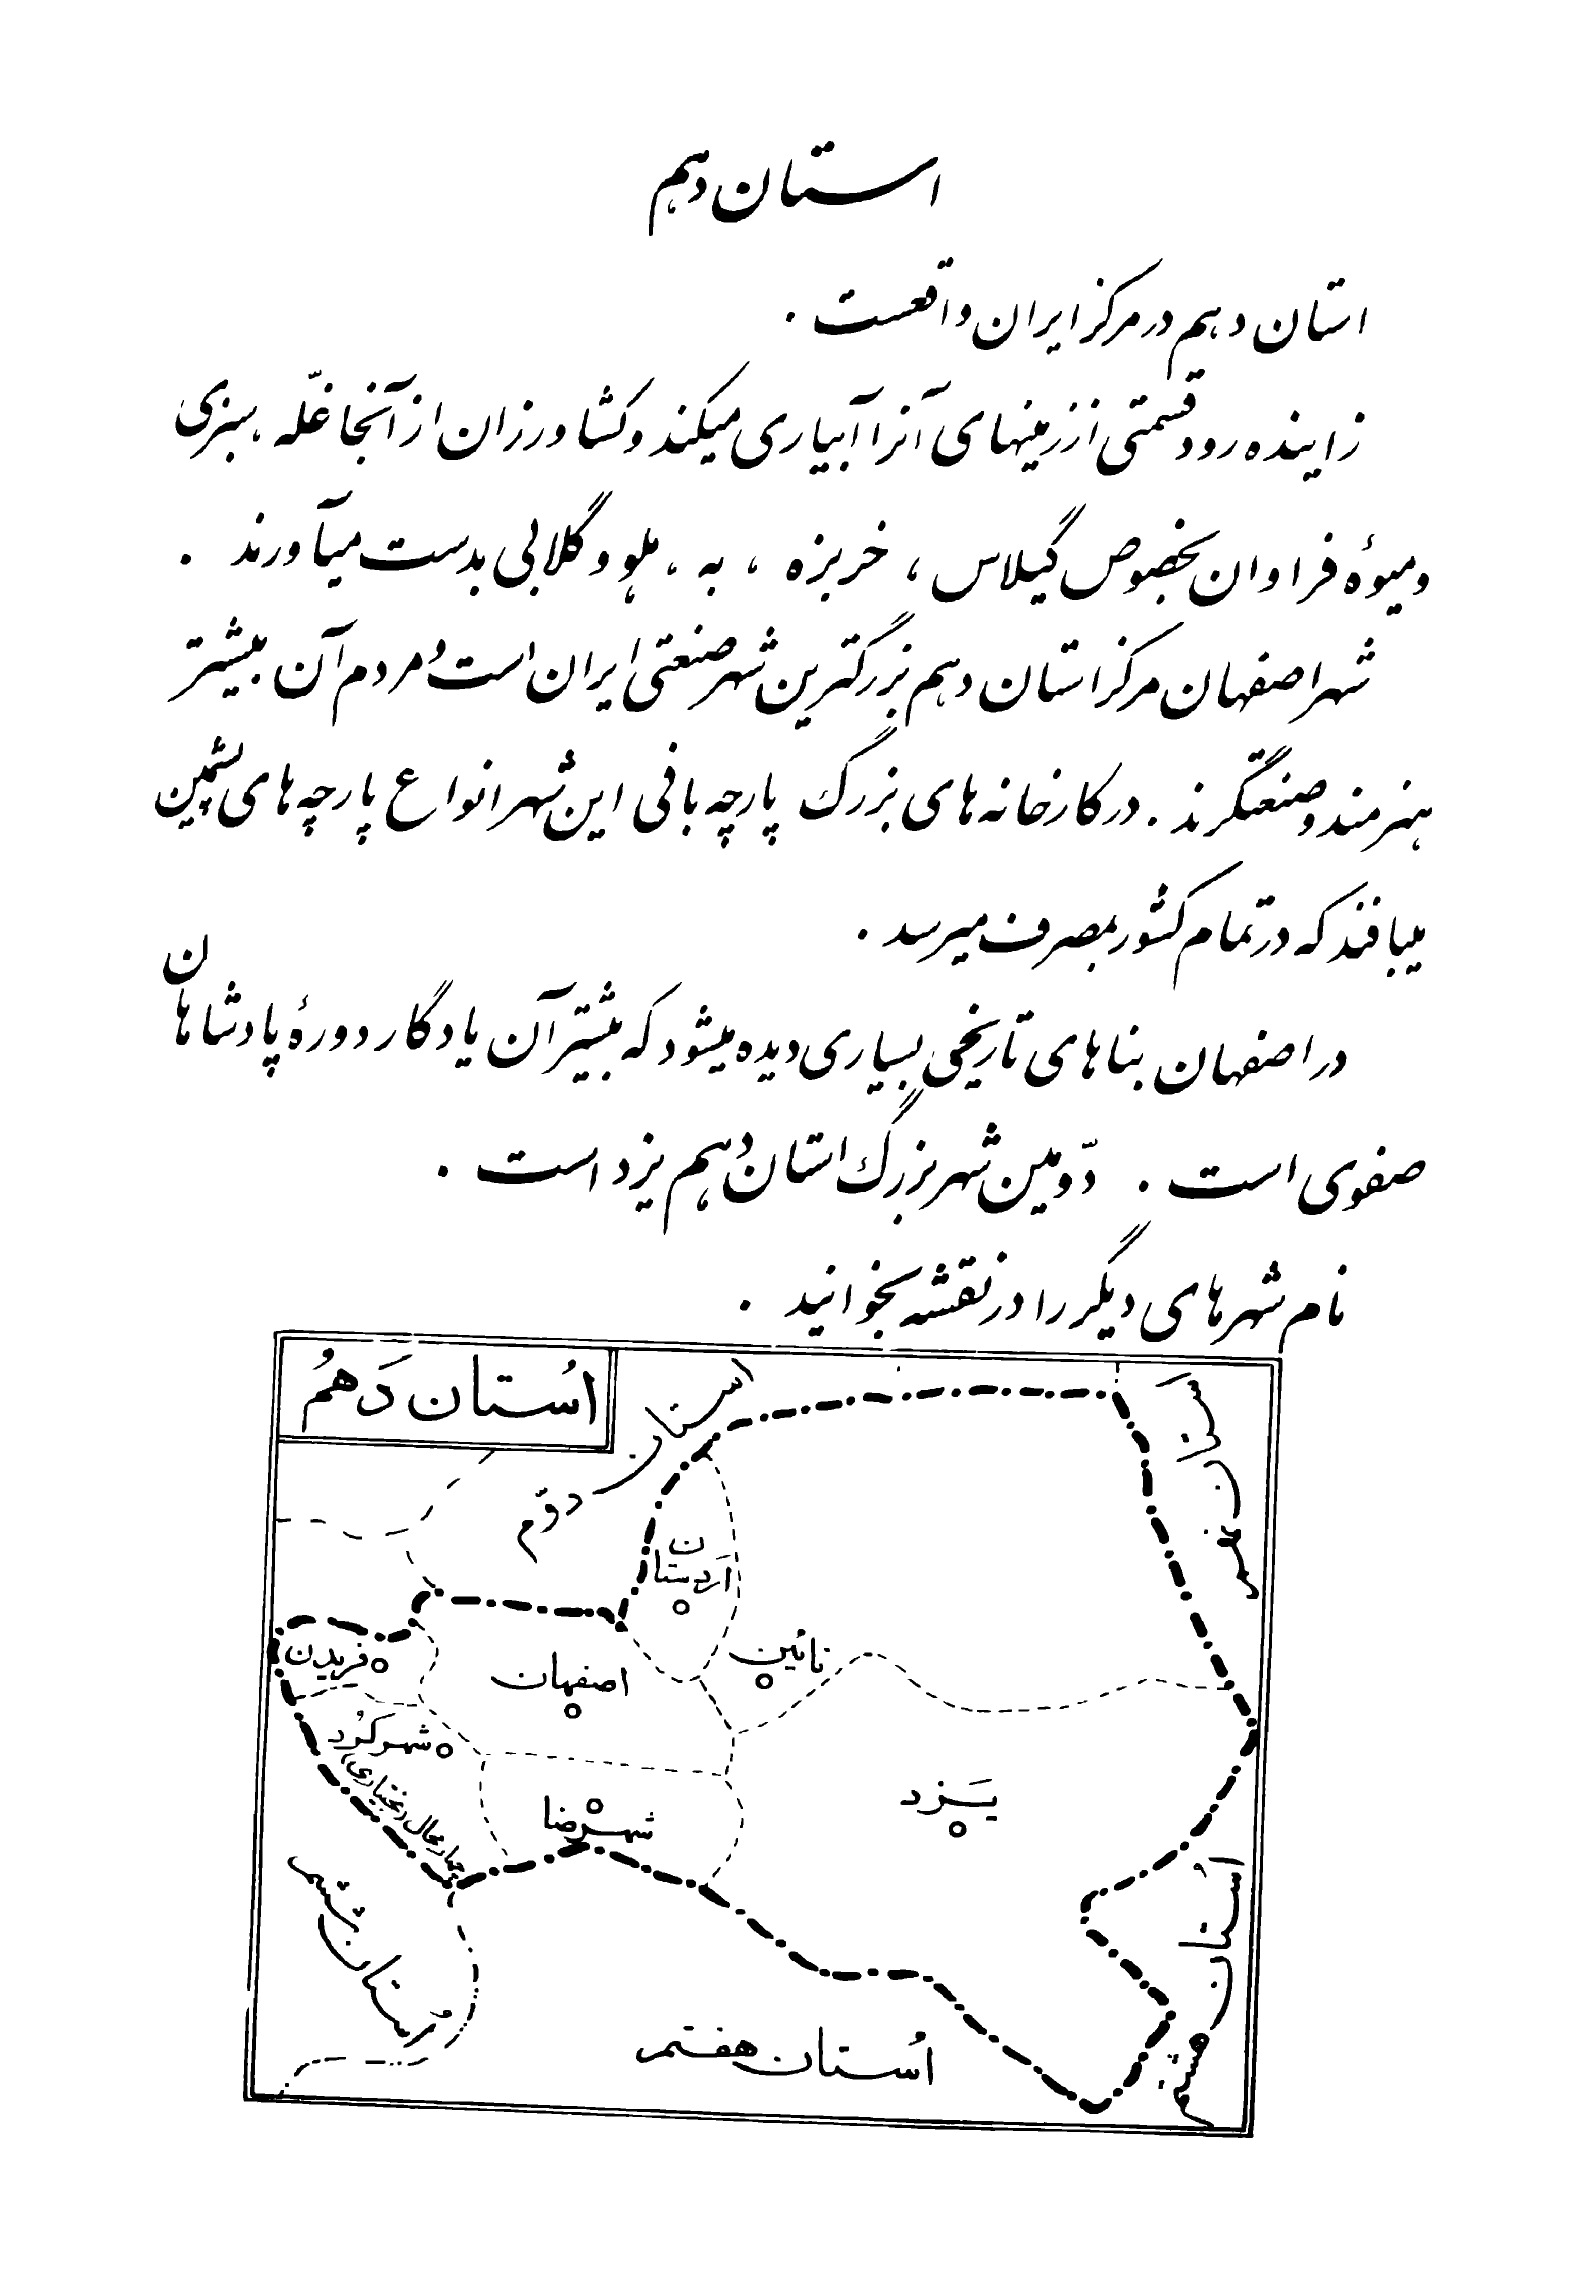 استان دهم
استان دهم در مرکز ایران واقعست .
زاینده رود قسمتی از زمینهای آنرا آبیاری میکند و کشاورزان از آنجا غلّه ، سبزی
و میوهٔ فراوان بخصوص گیلاس ، خربزه ، به ، هلو و گلابی بدست میآورند .
شهر اصفهان مرکز استان دهم بزرگترین شهر صنعتی ایران است و مردم آن بیشتر
هنرمند و صنعتگرند . در کارخانه های بزرگ پارچه بافی این شهر انواع پارچه های پشمین
میبافند که در تمام کشور بمصرف میرسد .
در اصفهان بناهای تاریخی بسیاری دیده میشود که بیشتر آن یادگار دورهٔ پادشاهان
صفوی است . دوّمین شهر بزرگ استان دهم یزد است .
نام شهرهای دیگر را در نقشه بخوانید .
اُستان دَهمُ
استان دوّم
اَردستان
نائین
فریدن
اصفهان
شهرکُرد
(چهارمحال بختیاری)
شهرضا
یَزد
اُستان ششم
اُستان هفتم
اُستان هشتم